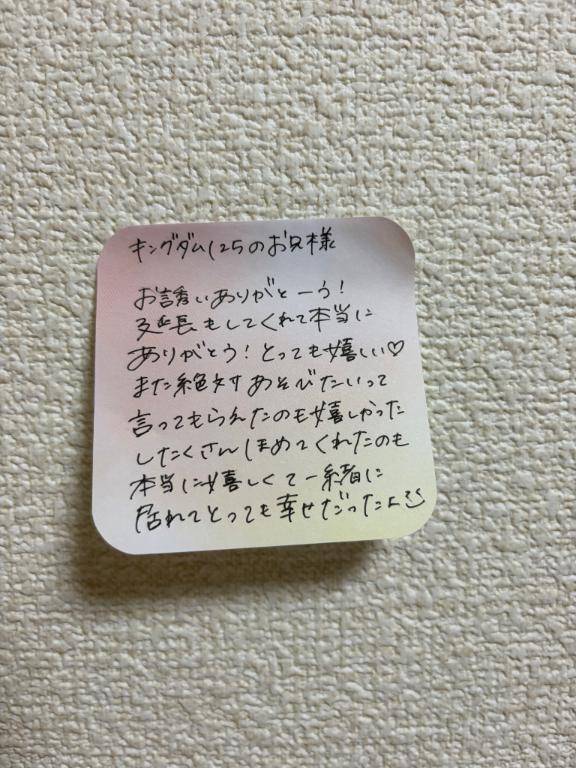 キングダム125のお兄様
お誘いありがとーう!
延長もしてくれて本当に
ありがとう!とっても嬉しい♡
また絶対あそびたいって
言ってもらえたのも嬉しかった
したくさんほめてくれたのも
本当に嬉しくて一緒に
居れてとっても幸せだったよ